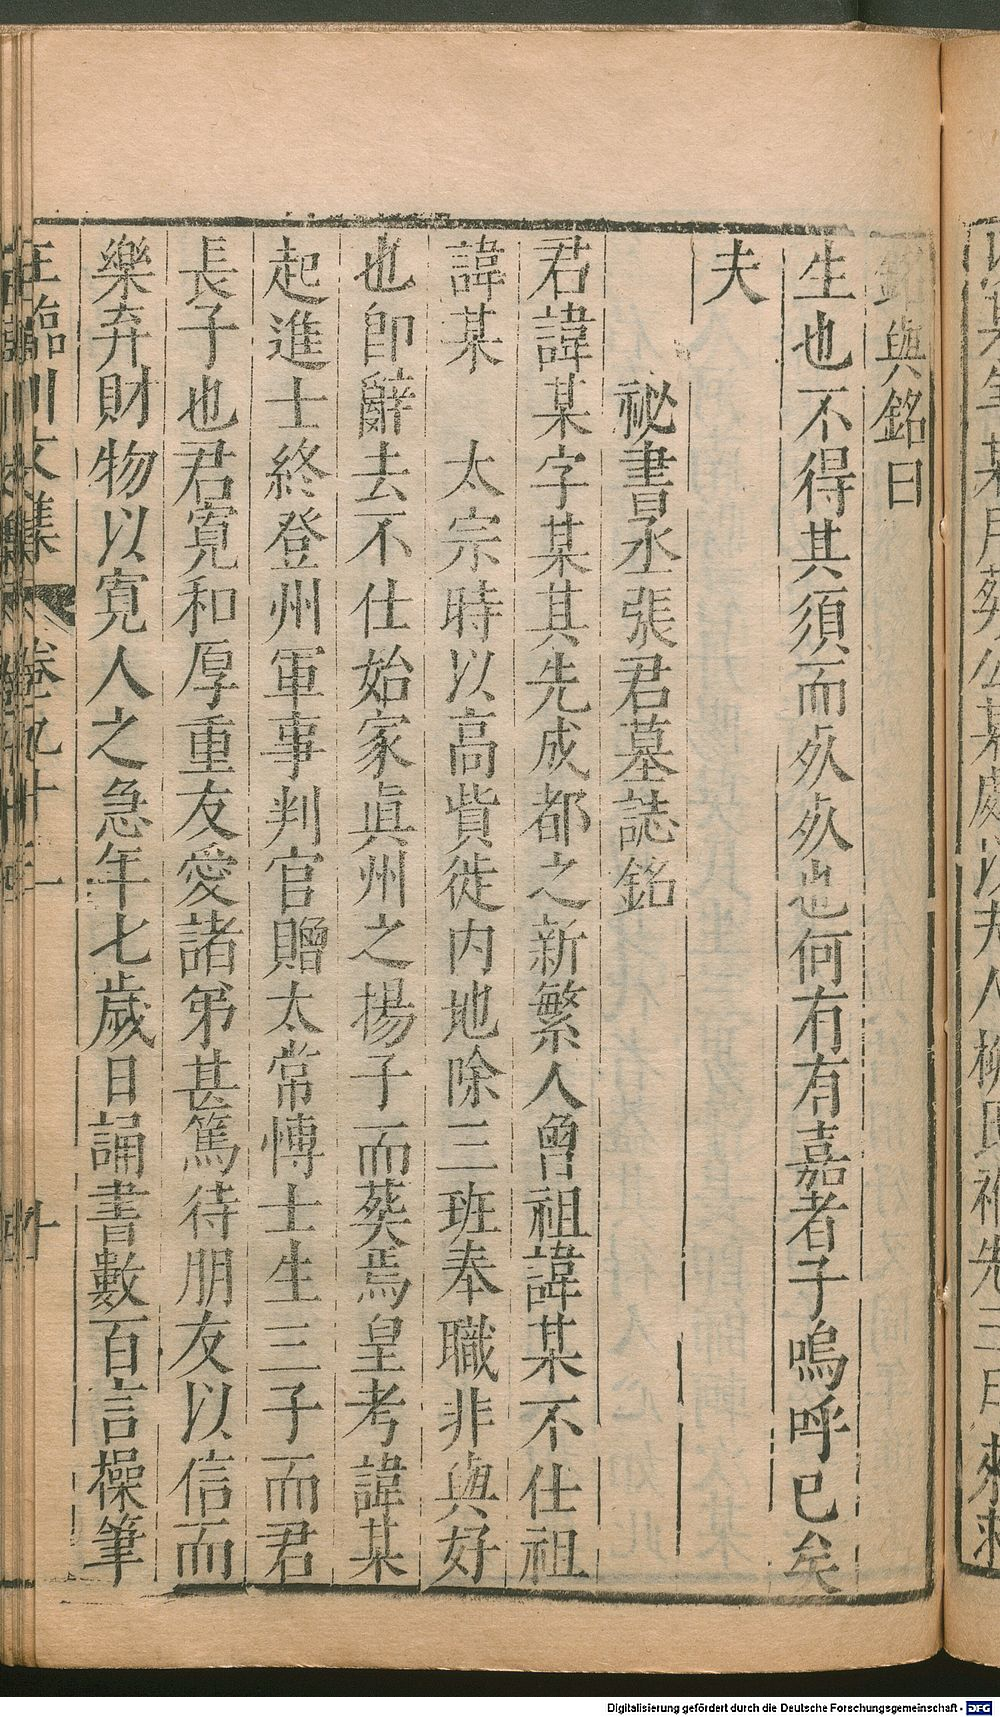 銘與銘曰
生也不得其須而夘夘也何有有嘉者子嗚呼已矣
夫
祕書丞張君墓誌銘
君諱某字某其先成都之新繁人曾祖諱某不仕祖
諱某　太宗時以高貲徙内地除三班奉職非與好
也卽辭去不仕始家眞州之揚子而葬焉皇考諱某
起進士終登州軍事判官贈太常愽士生三子而君
長子也君寬和厚重友愛諸弟甚篤待朋友以信而
樂弃財物以寛人之急年七歲日誦書數百言操筆
王臨川文集 卷九十二 十
Digitalisierung gefördert durch die Deutsche Forschungsgemeinschaft - DFG